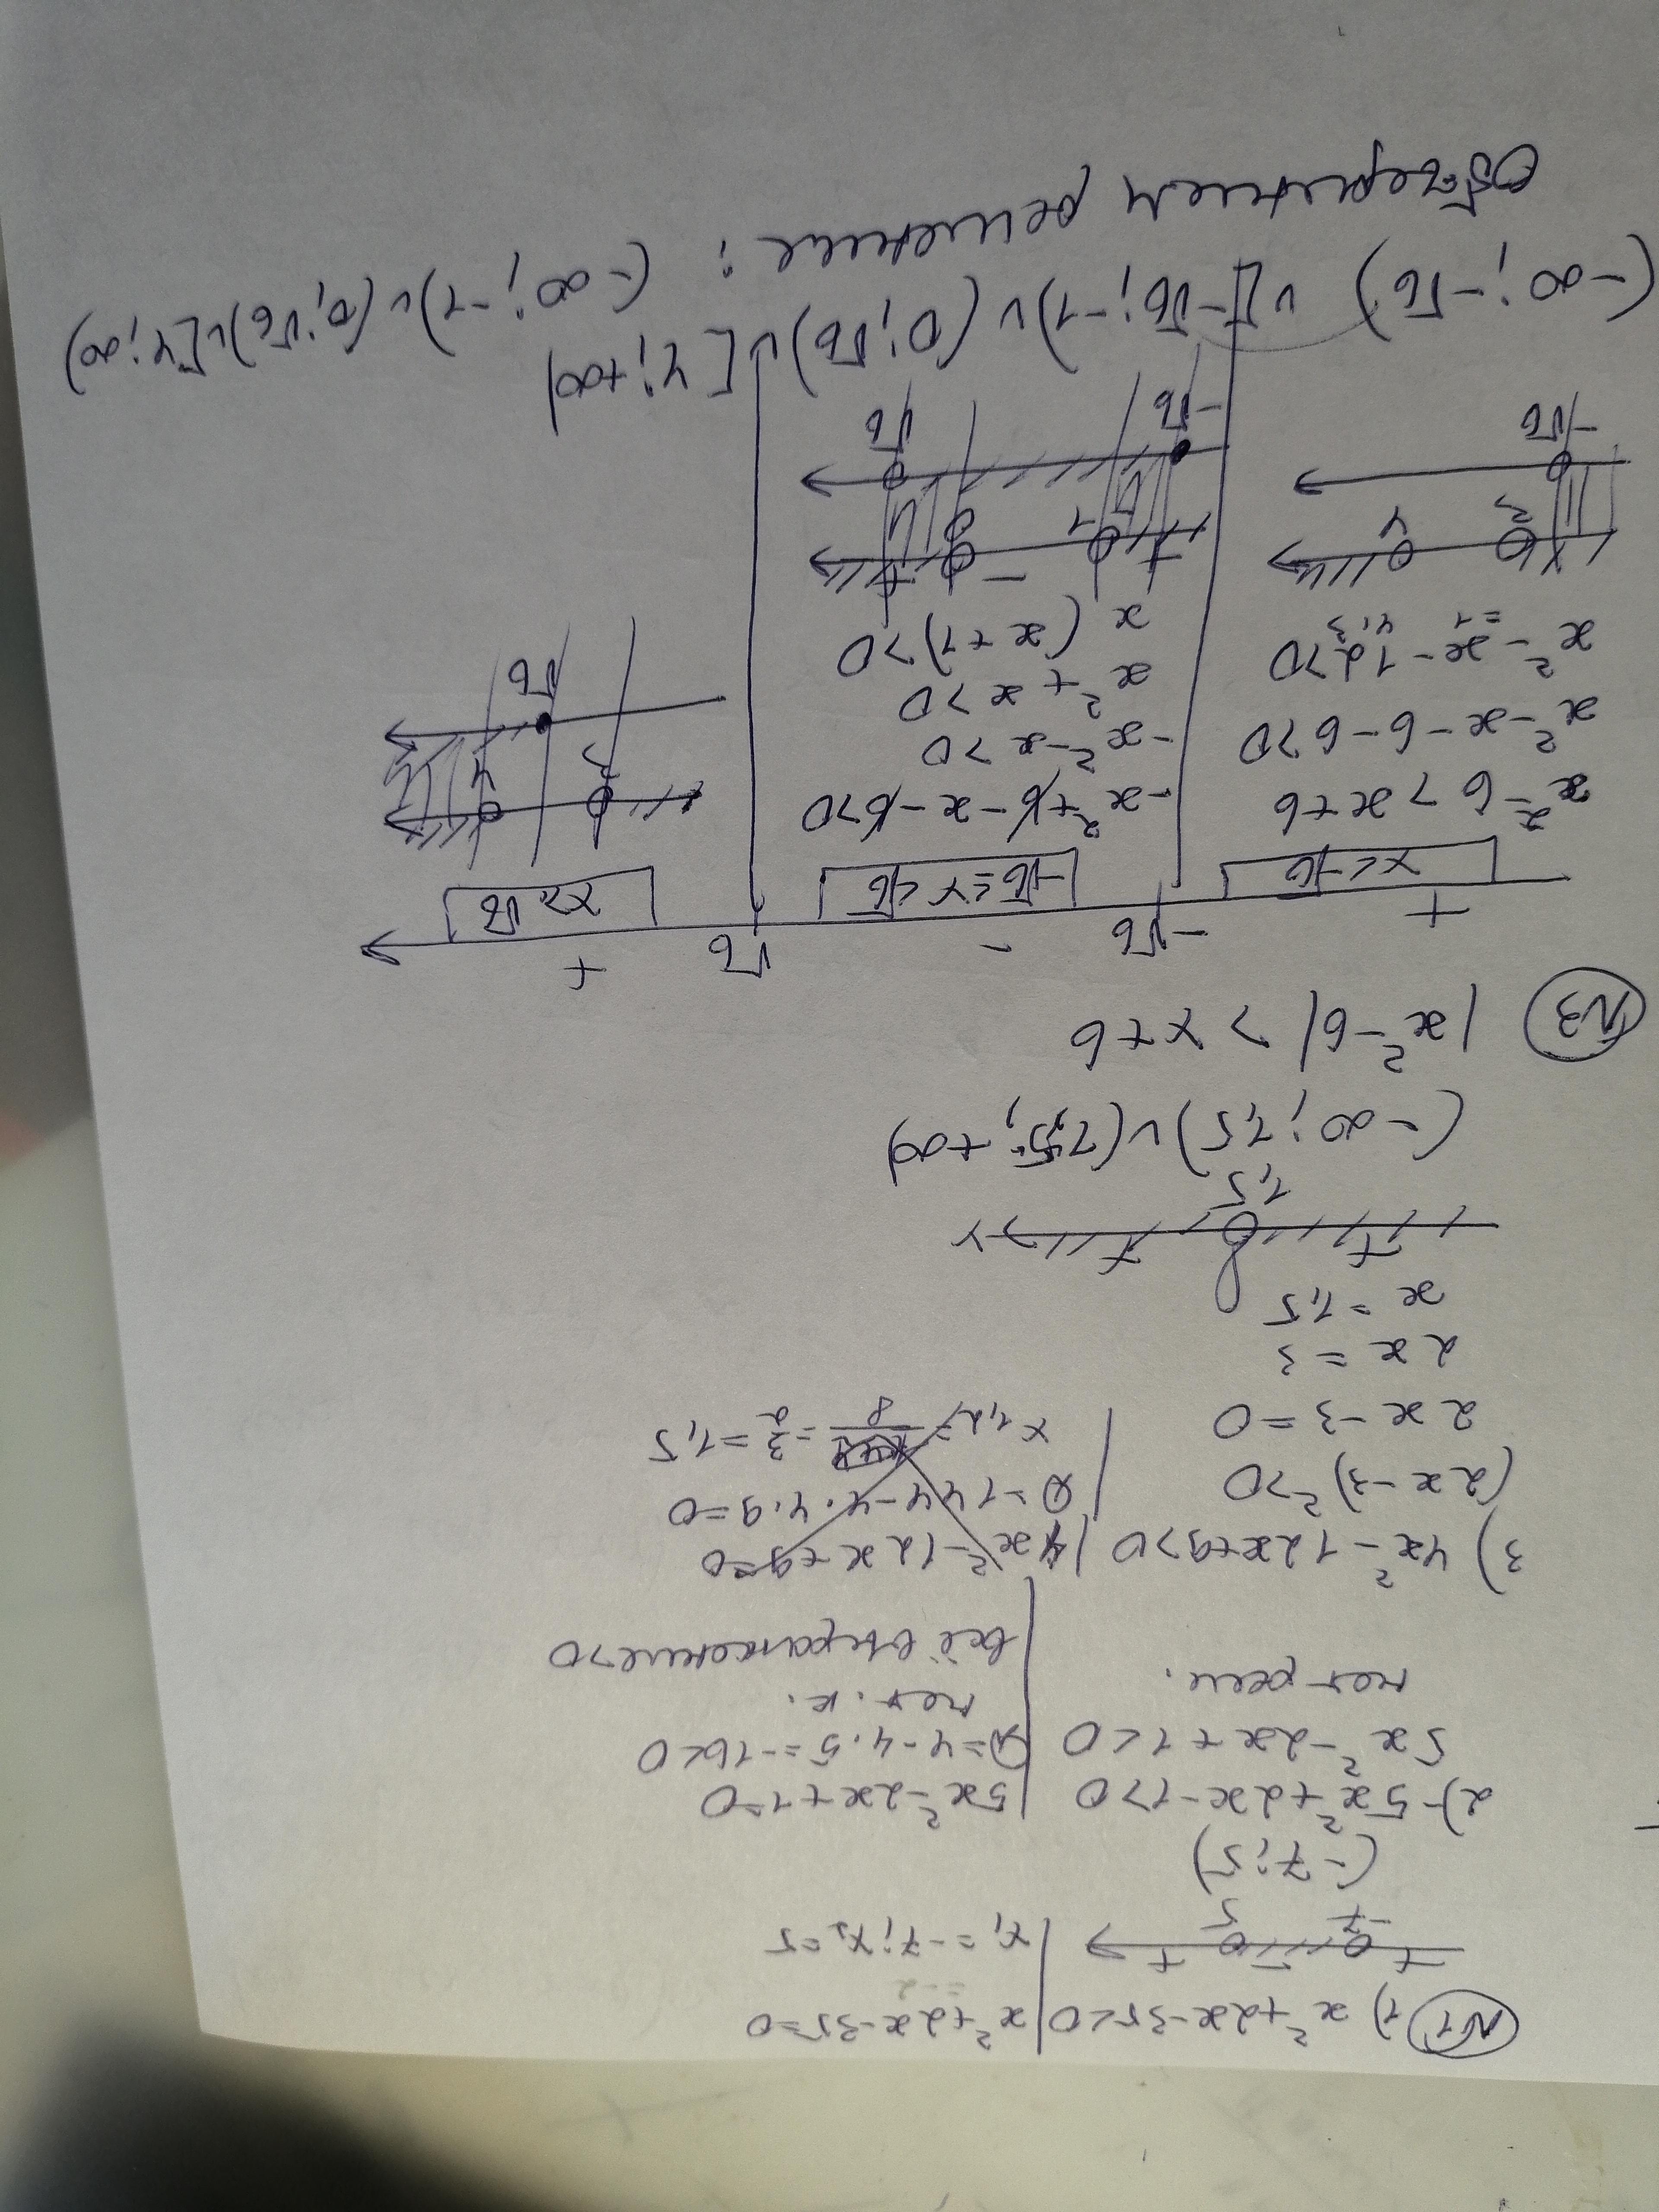 N1 1) x²+2x-35<0 | x²+2x-35=0
+ - + | x₁=-7; x₂=5
-7 5
(-7;5)
2) -5x²+2x-1>0 | 5x²-2x+1=0
5x²-2x+1<0 | D=4-4·5=-16<0
нет реш. | нет к.
всё выражение>0
3) 4x²-12x+9>0 | 4x²-12x+9=0
(2x-3)²>0 | D=144-4·4·9=0
2x-3=0 | x1,2= 8 =3/2=1,5
2x=3
x=1,5
+ +
1,5 x
(-∞; 1,5)∪(1,5; +∞)
N3 |x²-6|>x+6
+ -√6 - √6 +
x<-√6 -√6≤x<√6 x≥√6
x²-6>x+6 -x²+6-x-6>0
x²-x-6-6>0 -x²-x>0
x²-x-12>0 x²+x>0
=-1 4,3 x(x+1)>0
+ - +
-3 4 -1 0 -3 4
-√6 -√6 √6 √6
(-∞;-√6) ∪[-√6;-1)∪(0;√6)∪[4;+∞)
Объединяем решение: (-∞;-1)∪(0;√6)∪[4;∞)